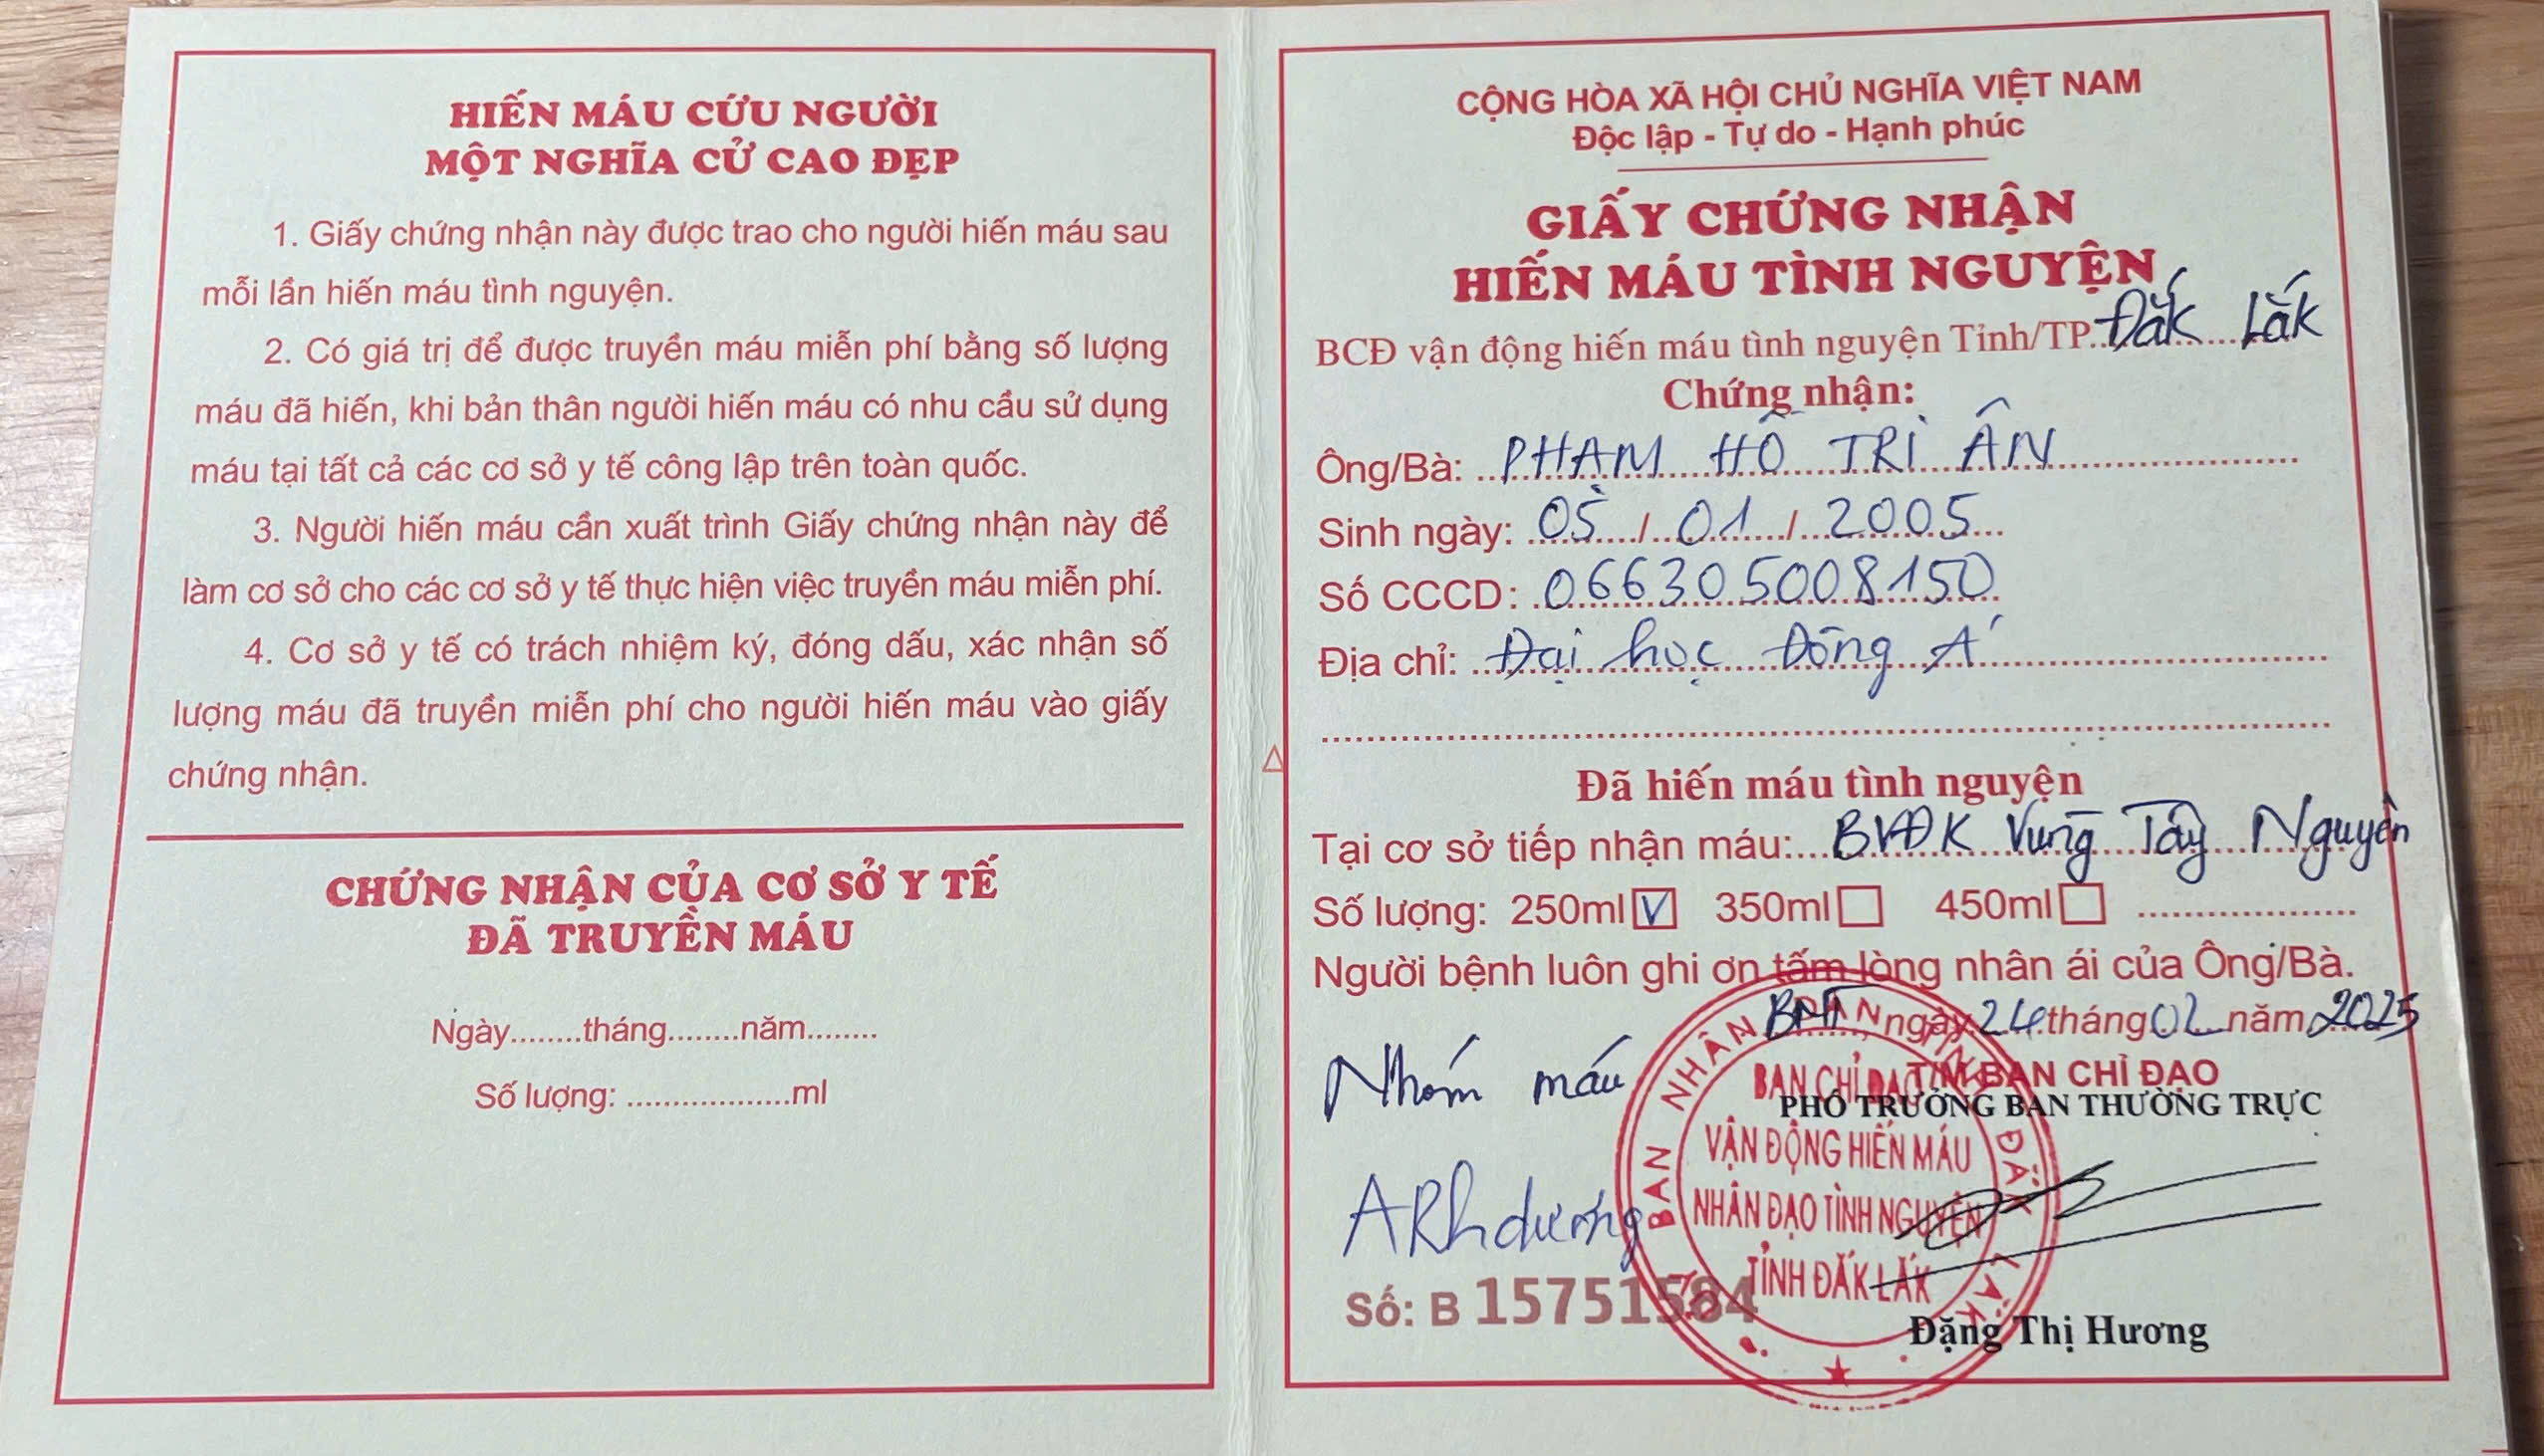 HIẾN MÁU CỨU NGƯỜI
MỘT NGHĨA CỬ CAO ĐẸP
1. Giấy chứng nhận này được trao cho người hiến máu sau
mỗi lần hiến máu tình nguyện.
2. Có giá trị để được truyền máu miễn phí bằng số lượng
máu đã hiến, khi bản thân người hiến máu có nhu cầu sử dụng
máu tại tất cả các cơ sở y tế công lập trên toàn quốc.
3. Người hiến máu cần xuất trình Giấy chứng nhận này để
làm cơ sở cho các cơ sở y tế thực hiện việc truyền máu miễn phí.
4. Cơ sở y tế có trách nhiệm ký, đóng dấu, xác nhận số
lượng máu đã truyền miễn phí cho người hiến máu vào giấy
chứng nhận.
CHỨNG NHẬN CỦA CƠ SỞ Y TẾ
ĐÃ TRUYỀN MÁU
Ngày........tháng........năm........
Số lượng: ...................ml
CỘNG HÒA XÃ HỘI CHỦ NGHĨA VIỆT NAM
Độc lập - Tự do - Hạnh phúc
GIẤY CHỨNG NHẬN
HIẾN MÁU TÌNH NGUYỆN
BCĐ vận động hiến máu tình nguyện Tỉnh/TP. Đắk Lắk
Chứng nhận:
Ông/Bà: PHẠM HỒ TRI ÂN
Sinh ngày: 05 / 01 / 2005
Số CCCD: 066305008150
Địa chỉ: Đại học Đông Á
Đã hiến máu tình nguyện
Tại cơ sở tiếp nhận máu: BVĐK Vùng Tây Nguyên
Số lượng: 250ml V 350ml 450ml
Người bệnh luôn ghi ơn tấm lòng nhân ái của Ông/Bà.
BMT ngày 24 tháng 02 năm 2025
T/M BAN CHỈ ĐẠO
PHÓ TRƯỞNG BAN THƯỜNG TRỰC
Nhóm máu
A Rh dương
BAN CHỈ ĐẠO
VẬN ĐỘNG HIẾN MÁU
NHÂN ĐẠO TÌNH NGUYỆN
TỈNH ĐẮK LẮK
ỦY BAN NHÂN DÂN TỈNH ĐẮK LẮK
Số: B 15751584
Đặng Thị Hương